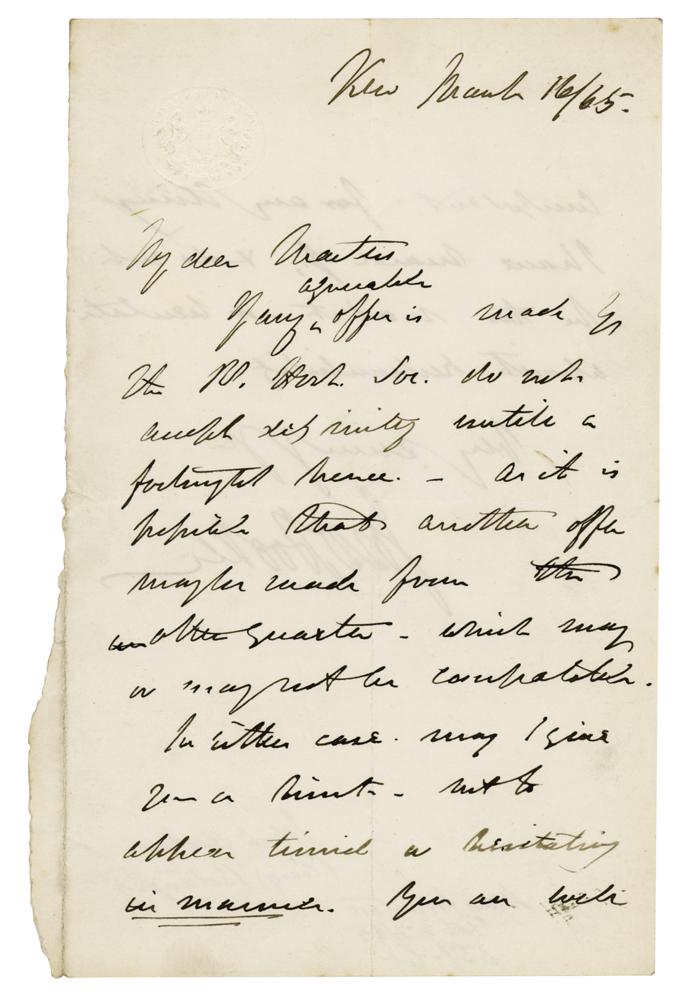 Kew March 16/65.
My dear Masters
agreeable
If any ^ offer is made by
the R. Hort. Soc. do not
accept definitely until a
fortnight hence. – as it is
possible that another offer
may be made from the
another quarter – which may
or may not be compatible.
In either case. may I give
you a hint – not to
appear timid or hesitating
in manner. You are well